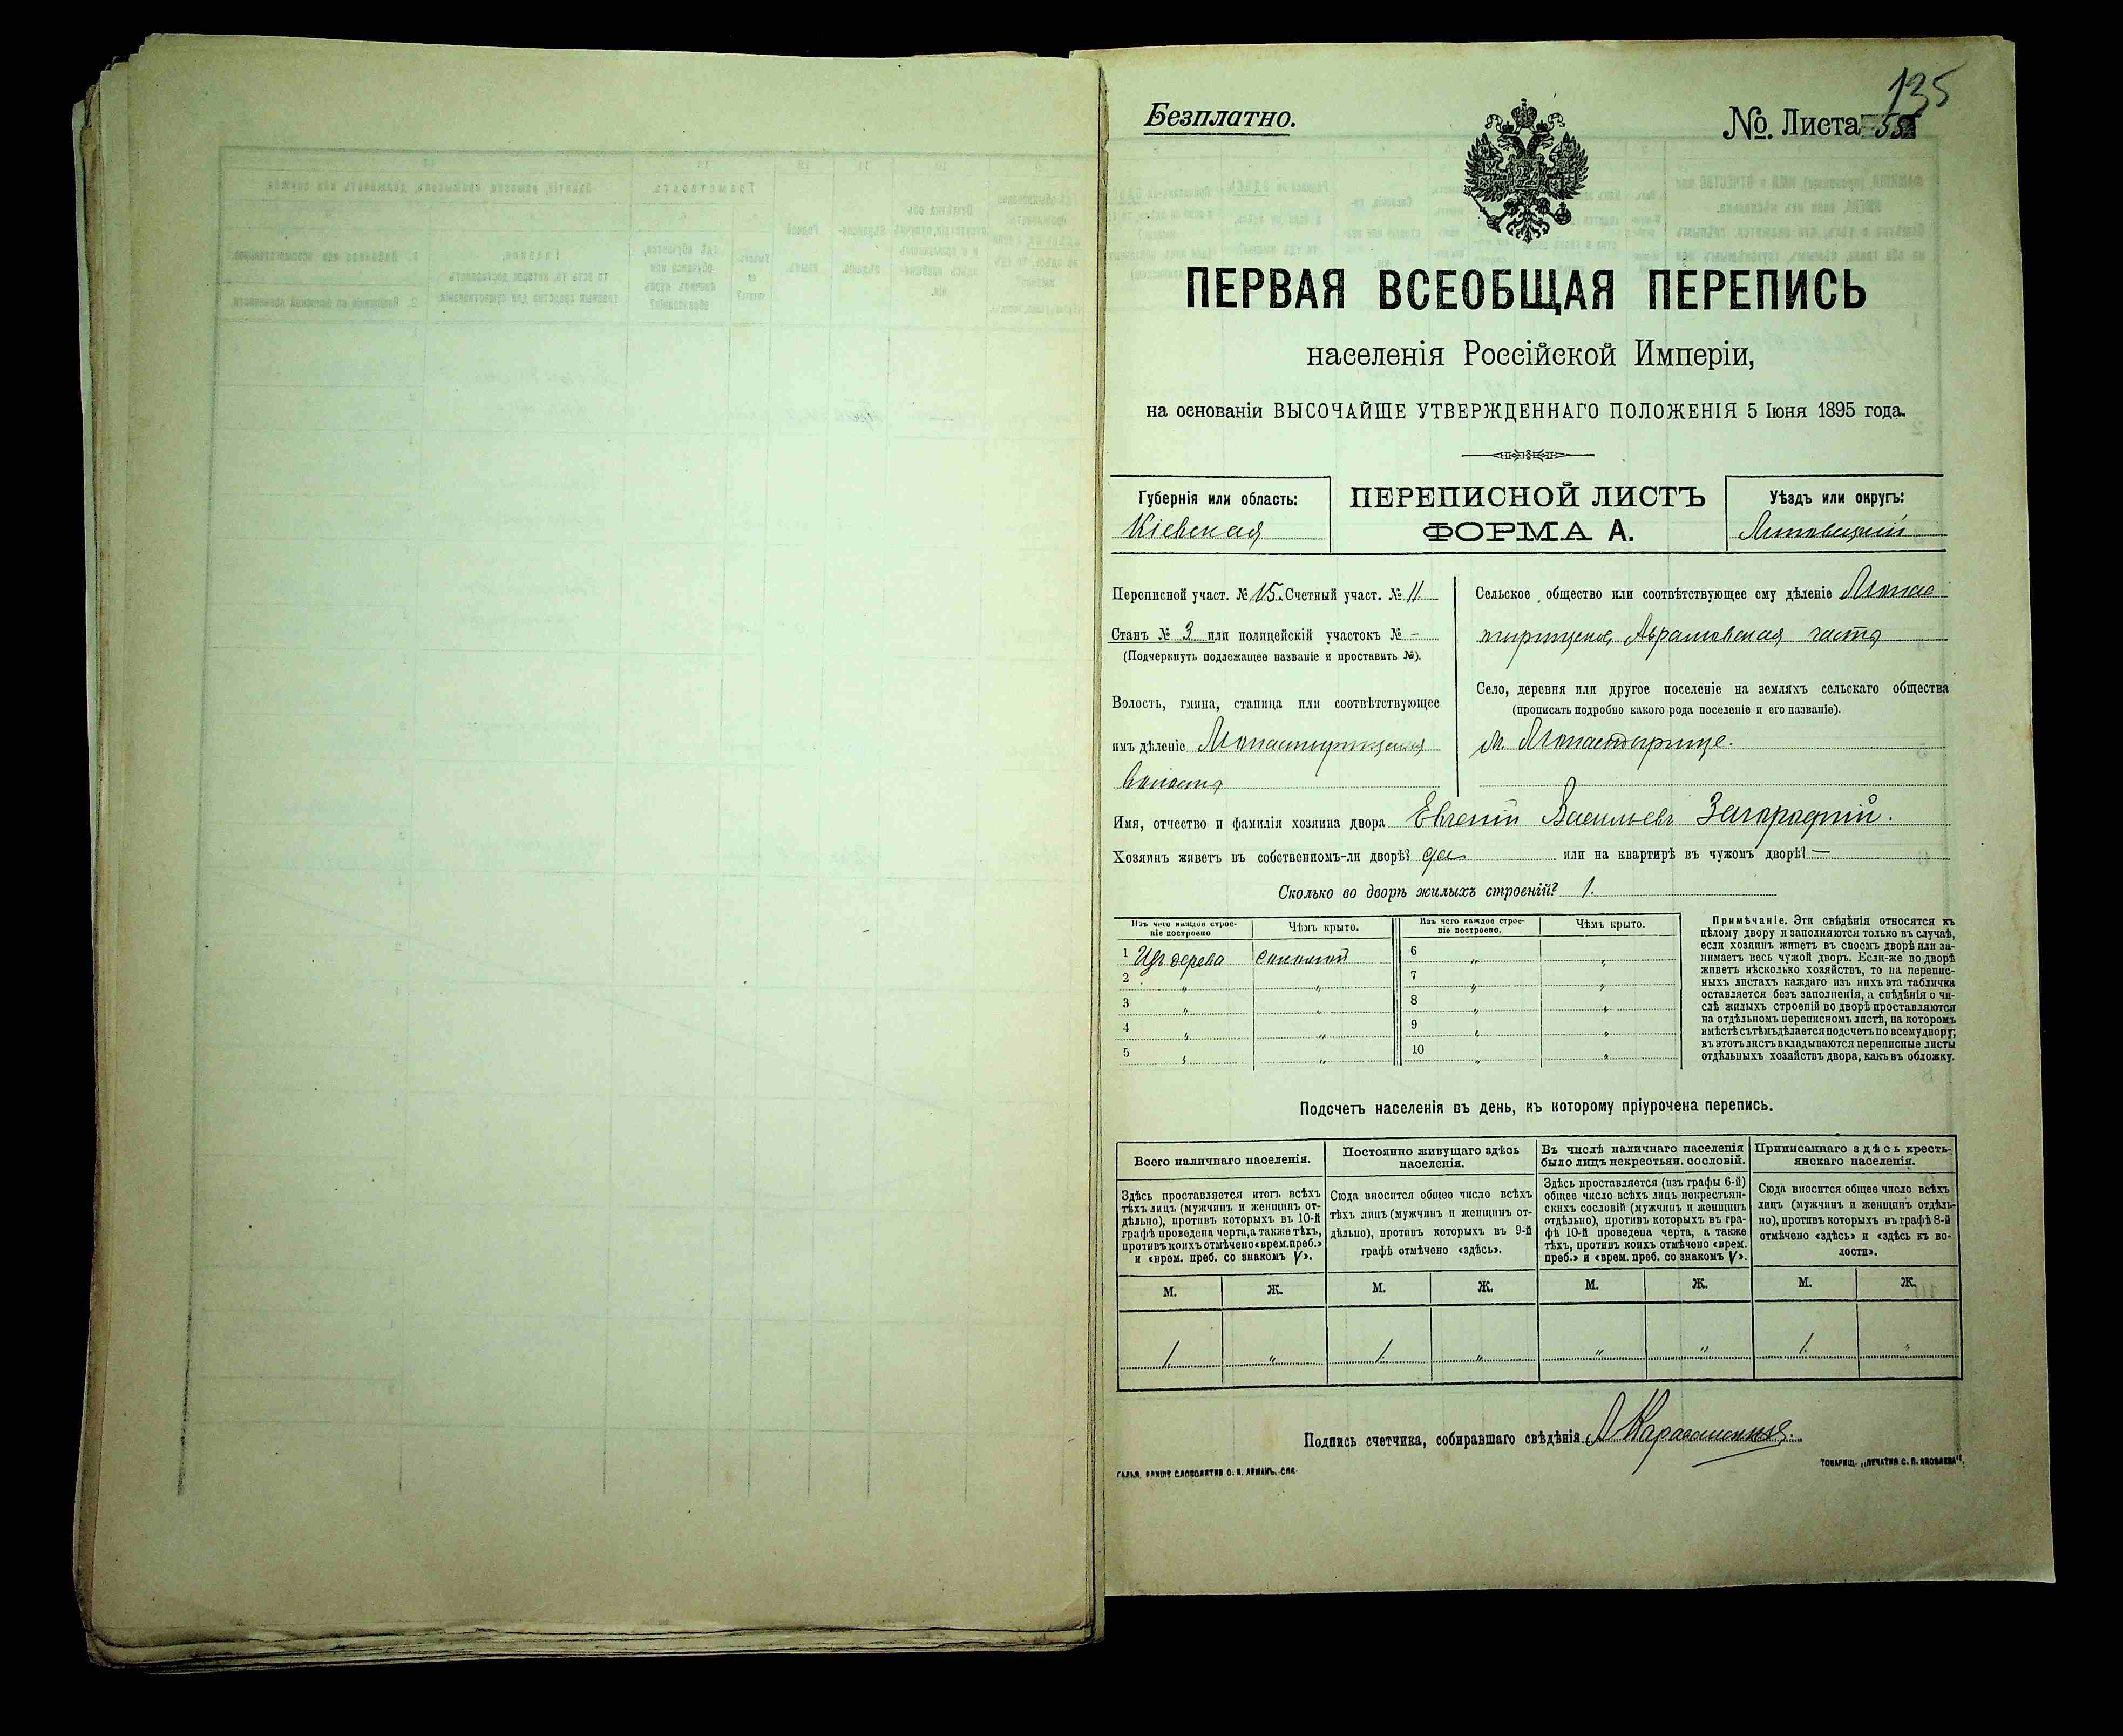 135
Безплатно.
№. Листа 55
ПЕРВАЯ ВСЕОБЩАЯ ПЕРЕПИСЬ
населенія Россійской Имперіи,
на основаніи ВЫСОЧАЙШЕ УТВЕРЖДЕННАГО ПОЛОЖЕНІЯ 5 Іюня 1895 года.
Губернія или область:
Кіевская
ПЕРЕПИСНОЙ ЛИСТЪ
ФОРМА А.
Уѣздъ или округъ:
Липовецкій
Переписной участ. № 15. Счетный участ. № 11
Станъ № 3 или полицейскій участокъ № –
(Подчеркнуть подлежащее названіе и проставить №).
Волость, гмина, станица или соотвѣтствующее
имъ дѣленіе Монастырищская
волость
Сельское общество или соотвѣтствующее ему дѣленіе Монас
тырищское, Аврамовская часть
Село, деревня или другое поселеніе на земляхъ сельскаго общества
(прописать подробно какого рода поселеніе и его названіе).
м. Монастырище.
Имя, отчество и фамилія хозяина двора Евгеній Васильевъ Загородній.
Хозяинъ живетъ въ собственномъ-ли дворѣ? да или на квартирѣ въ чужомъ дворѣ? —
Сколько во дворѣ жилыхъ строеній? 1.
Изъ чего каждое строе-
ніе построено
Чѣмъ крыто.
Изъ чего каждое строе-
ніе построено.
Чѣмъ крыто.
1 Изъ дерева соломой 6 " "
2 " " 7 " "
3 " " 8 " "
4 " " 9 " "
5 " " 10 " "
Примѣчаніе. Эти свѣдѣнія относятся къ
цѣлому двору и заполняются только въ случаѣ,
если хозяинъ живетъ въ своемъ дворѣ или за-
нимаетъ весь чужой дворъ. Если-же во дворѣ
живетъ нѣсколько хозяйствъ, то на перепис-
ныхъ листахъ каждаго изъ нихъ эта табличка
оставляется безъ заполненія, а свѣдѣнія о чи-
слѣ жилыхъ строеній во дворѣ проставляются
на отдѣльномъ переписномъ листѣ, на которомъ
вмѣстѣ съ тѣмъ дѣлается подсчетъ по всему двору;
въ этотъ листъ вкладываются переписные листы
отдѣльныхъ хозяйствъ двора, какъ въ обложку.
Подсчетъ населенія въ день, къ которому пріурочена перепись.
Всего наличнаго населенія.
Здѣсь проставляется итогъ всѣхъ
тѣхъ лицъ (мужчинъ и женщинъ от-
дѣльно), противъ которыхъ въ 10-й
графѣ проведена черта, а также тѣхъ,
противъ коихъ отмѣчено «врем. преб.»
и «врем. преб. со знакомъ V».
Постоянно живущаго здѣсь
населенія.
Сюда вносится общее число всѣхъ
тѣхъ лицъ (мужчинъ и женщинъ от-
дѣльно), противъ которыхъ въ 9-й
графѣ отмѣчено «здѣсь».
Въ числѣ наличнаго населенія
было лицъ некрестьян. сословій.
Здѣсь проставляется (изъ графы 6-й)
общее число всѣхъ лицъ некрестьян-
скихъ сословій (мужчинъ и женщинъ
отдѣльно), противъ которыхъ въ гра-
фѣ 10-й проведена черта, а также
тѣхъ, противъ коихъ отмѣчено «врем.
преб.» и «врем. преб. со знакомъ V».
Приписаннаго здѣсь кресть-
янскаго населенія.
Сюда вносится общее число всѣхъ
лицъ (мужчинъ и женщинъ отдѣль-
но), противъ которыхъ въ графѣ 8-й
отмѣчено «здѣсь» и «здѣсь въ во-
лости».
М. Ж. М. Ж. М. Ж. М. Ж.
1 " 1 " " " 1 "
Подпись счетчика, собиравшаго свѣдѣнія
ТОВАРИЩ. „ПЕЧАТНЯ С. П. ЯКОВЛЕВА".